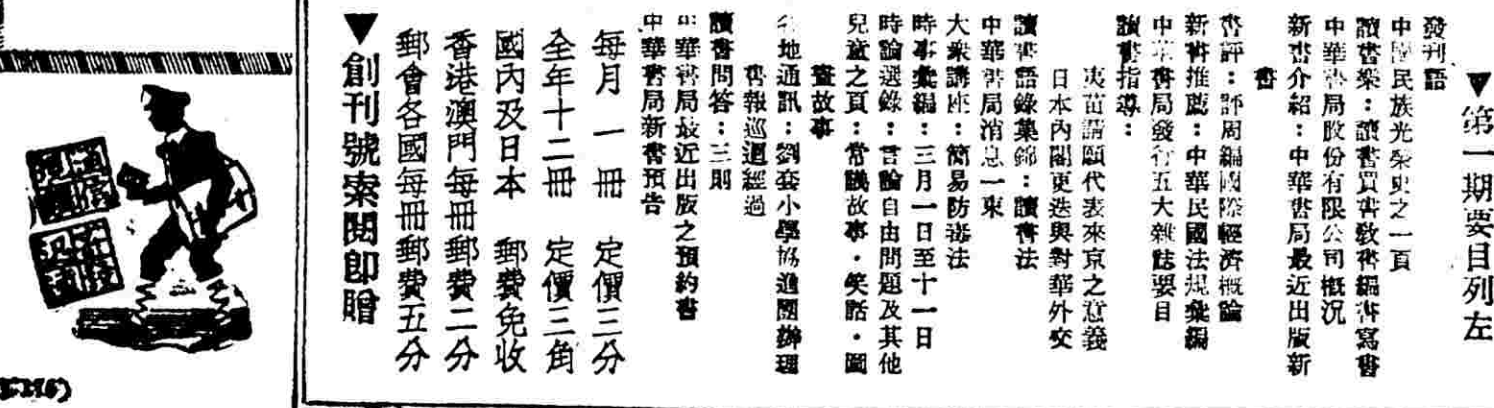 ▼第一期要目列左
發刊語
中國民族光榮史之一頁
讀書樂：讀書買書敎書編書寫書
中華書局股份有限公司槪況
新書介紹：中華書局最近出版新
書
書評：評周編國際經濟槪論
新書推薦：中華民國法規彙編
中華書局發行五大雜誌要目
讀書指導：
夷苗請願代表來京之意義
日本內閣更迭與對華外交
讀書語錄集錦：讀書法
中華書局消息一束
大衆講座：簡易防毒法
時事彙編：三月一日至十一日
時論選錄：言論自由問題及其他
兒童之頁：常識故事・笑話・圖
畫故事
各地通訊：劉套小學協進團辦理
書報巡迴經過
讀書問答：三則
中華書局最近出版之預約書
中華書局新書預告
每月一冊 定價三分
全年十二冊 定價三角
國內及日本 郵費免收
香港澳門每冊郵費二分
郵會各國每冊郵費五分
▼創刊號索閱卽贈